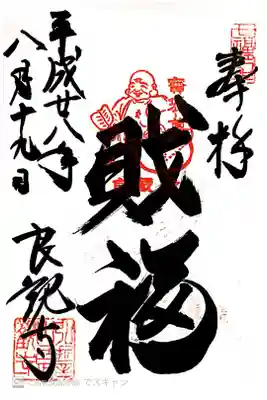 奉拝
財福
良観寺
平成廿八年
八月十九日
でスキャン